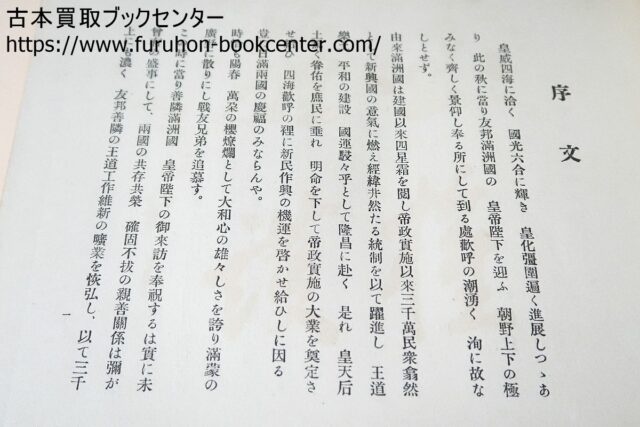 古本買取ブックセンター
https://www.furuhon-bookcenter.com/
序文
皇威四海に洽く　國光六合に輝き　皇化彊圉遍く進展しつゝあ
り　此の秋に當り友邦滿洲國の　皇帝陛下を迎ふ　朝野上下の極
みなく齊しく景仰し奉る所にして到る處歡呼の潮湧く　洵に故な
しとせず。
由來滿洲國は建國以來四星霜を閲し帝政實施以來三千萬民衆翕然
として新興國の意氣に燃え經緯井然たる統制を以て躍進し　王道
樂　平和の建設　國運駸々乎として隆昌に赴く　是れ　皇天后
土　く眷佑を庶民に垂れ　明命を下して帝政實施の大業を奠定さ
せ　ひ　四海歡呼の裡に新民作興の機運を啓かせ給ひしに因る
豈　日滿兩國の慶福のみならんや。
時　陽春　萬朶の櫻燎爛として大和心の雄々しさを誇り滿蒙の
廣　に散りにし戰友兄弟を追慕す。
こ　時に當り善隣滿洲國　皇帝陛下の御來訪を奉祝するは實に未
曾　の盛事にして、兩國の共存共榮　確固不拔の親善關係は彌が
上にも濃く　友邦善隣の王道工作維新の曠業を恢弘し、以て三千
一